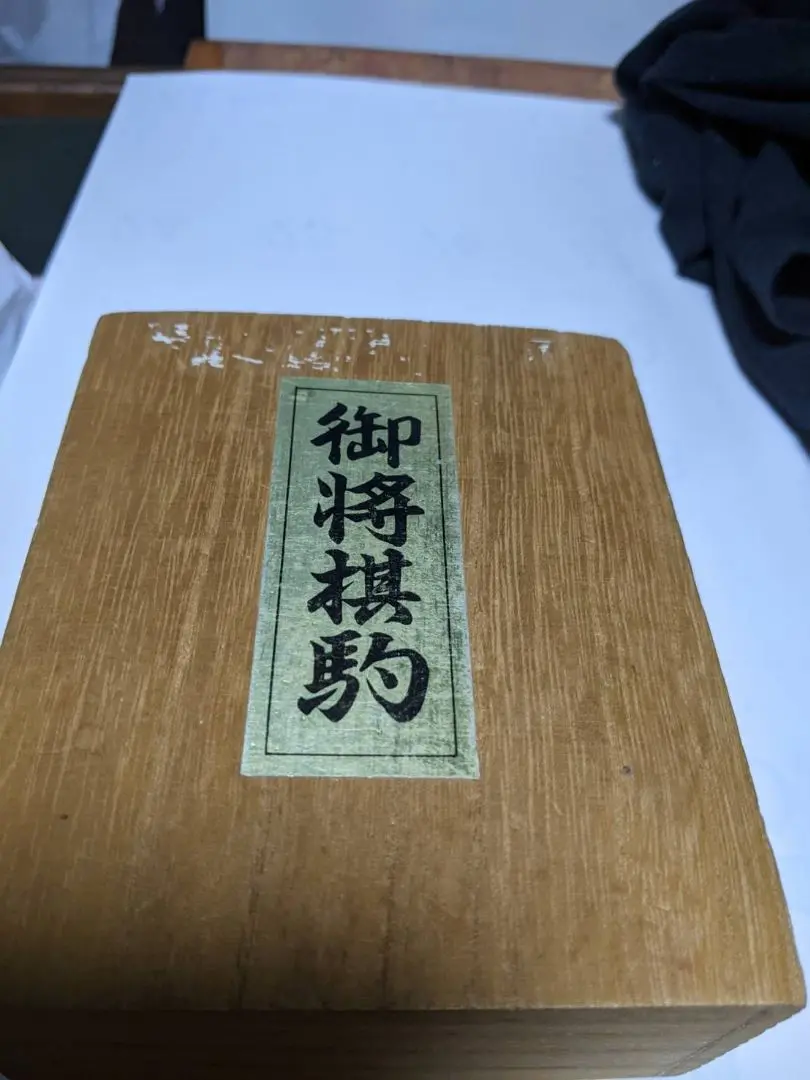 御将棋駒